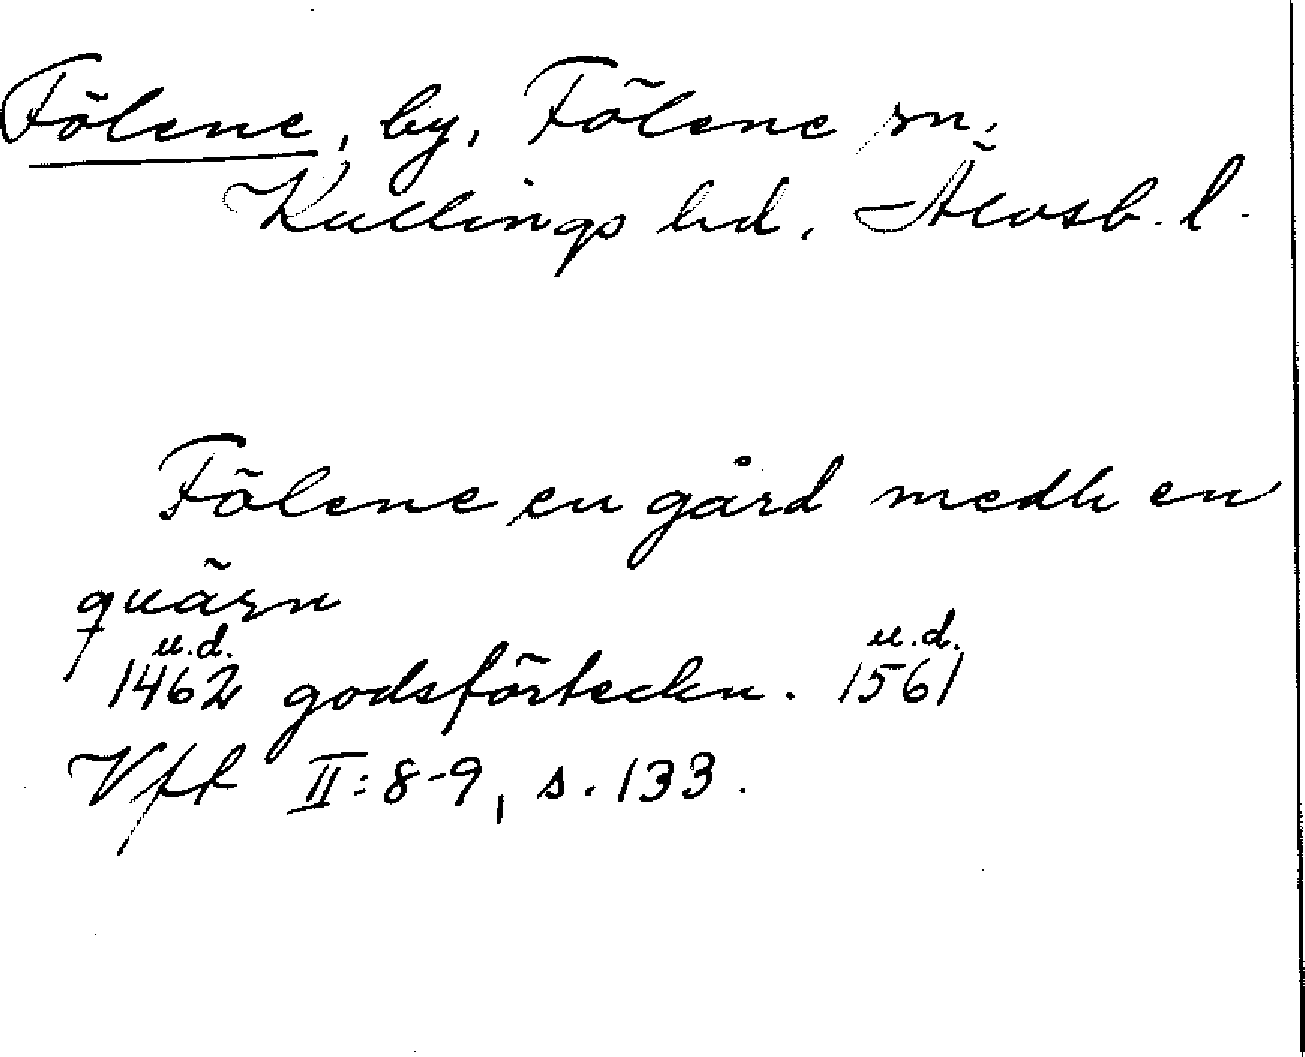 Fölene, by, Fölene sn.
Kullings hd, Älvsb. l.
Fölene en gård medh en
quärn
u.d. u.d.
1462 godsförteckn. 1561
Vft II:8-9, s. 133.